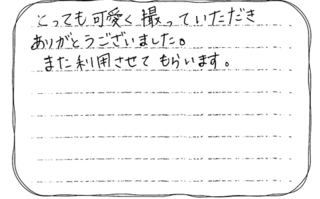 とっても可愛く撮っていただき
ありがとうございました。
また利用させてもらいます。